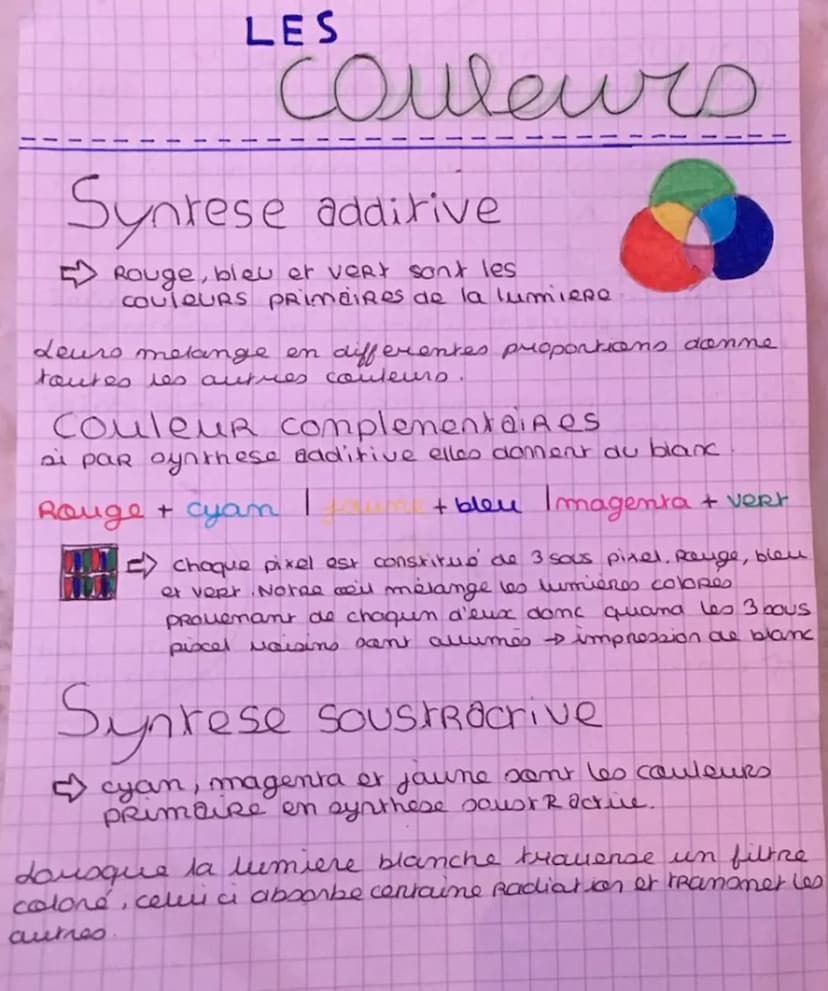 LES
couleurs
Syntese additive
⇒ Rouge, bleu et vert sont les
couleurs primaires de la lumiere
Leurs melange en differentes proportions donne
toutes les autres couleurs.
Couleur complementaires
si par synthese additive elles donnent du blanc.
Rouge + cyan | jaune + bleu | magenta + vert
⇒ chaque pixel est constitué de 3 sous pixel. Rouge, bleu
et vert. Notre œil mélange les lumières colorés
provenant de chaqun d'eux donc quand les 3 sous
pixel voisins sont allumés → impression de blanc
Syntese soustractive
⇒ cyan, magenta et jaune sont les couleurs
primaire en synthese soustractive.
Lorsque la lumiere blanche traverse un filtre
coloré, celui ci absorbe certaine radiation et transmet les
autres.